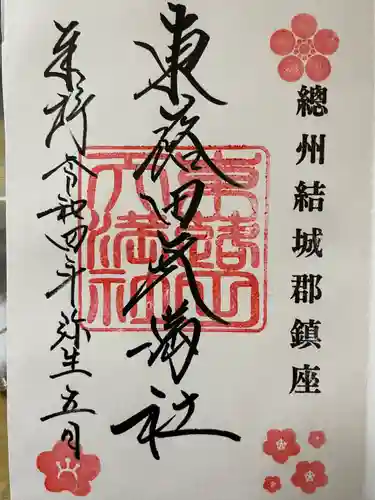 總州結城郡鎮座
東蕗田天満社
令和四年弥生五日
東蕗田
天満社